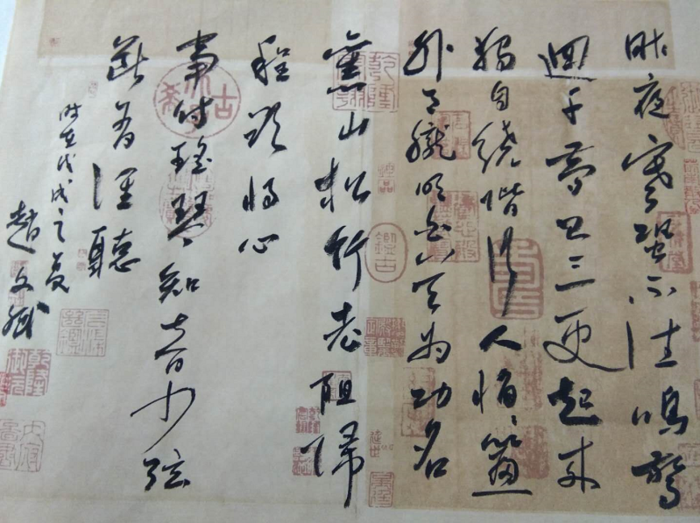 昨夜寒蛩不住鳴驚
迴千夢已三更起来
獨自繞階行人悄悄簾
外月朧明白首为功名
舊山松竹老阻歸
程欲將心
事付瑤琴知音少弦
斷有谁聽
時在戊戌之夏
趙文斌